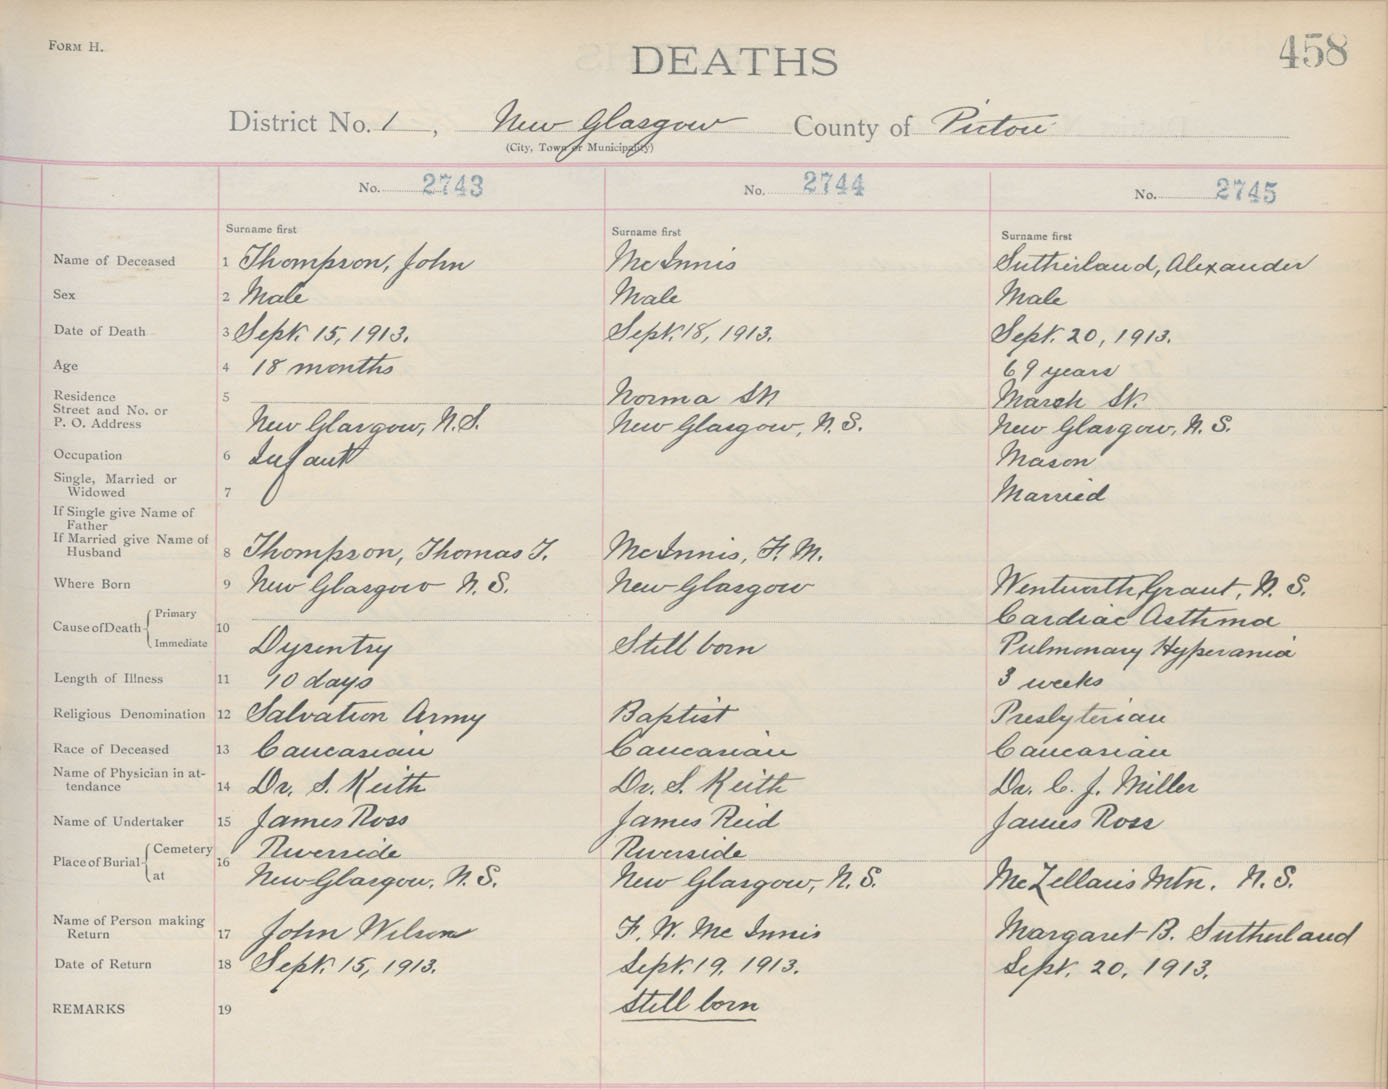 FORM H.
DEATHS
458
District No. 1, New Glasgow County of Pictou
(City, Town or Municipality)
No. 2743 No. 2744 No. 2745
Surname first Surname first Surname first
Name of Deceased 1 Thompson, John McInnis Sutherland, Alexander
Sex 2 Male Male Male
Date of Death 3 Sept. 15, 1913. Sept. 18, 1913. Sept. 20, 1913.
Age 4 18 months 69 years
Residence 5 Norma St. March St.
Street and No. or
P. O. Address New Glasgow, N.S. New Glasgow, N.S. New Glasgow, N.S.
Occupation 6 Infant Mason
Single, Married or
Widowed 7 Married
If Single give Name of
Father
If Married give Name of
Husband 8 Thompson, Thomas T. McInnis, F. M.
Where Born 9 New Glasgow N.S. New Glasgow Wentworth Grant, N.S.
Cause of Death Primary 10 Cardiac Asthma
Immediate Dysentry Still born Pulmonary Hyperamia
Length of Illness 11 10 days 3 weeks
Religious Denomination 12 Salvation Army Baptist Presbyterian
Race of Deceased 13 Caucasian Caucasian Caucasian
Name of Physician in at-
tendance 14 Dr. S. Keith Dr. S. Keith Dr. C. J. Miller
Name of Undertaker 15 James Ross James Reid James Ross
Place of Burial Cemetery 16 Riverside Riverside
at New Glasgow, N.S. New Glasgow, N.S. Mtn. N.S.
Name of Person making
Return 17 John Wilson F. W. McInnis Margaret B. Sutherland
Date of Return 18 Sept. 15, 1913. Sept. 19, 1913. Sept. 20, 1913.
REMARKS 19 Still born